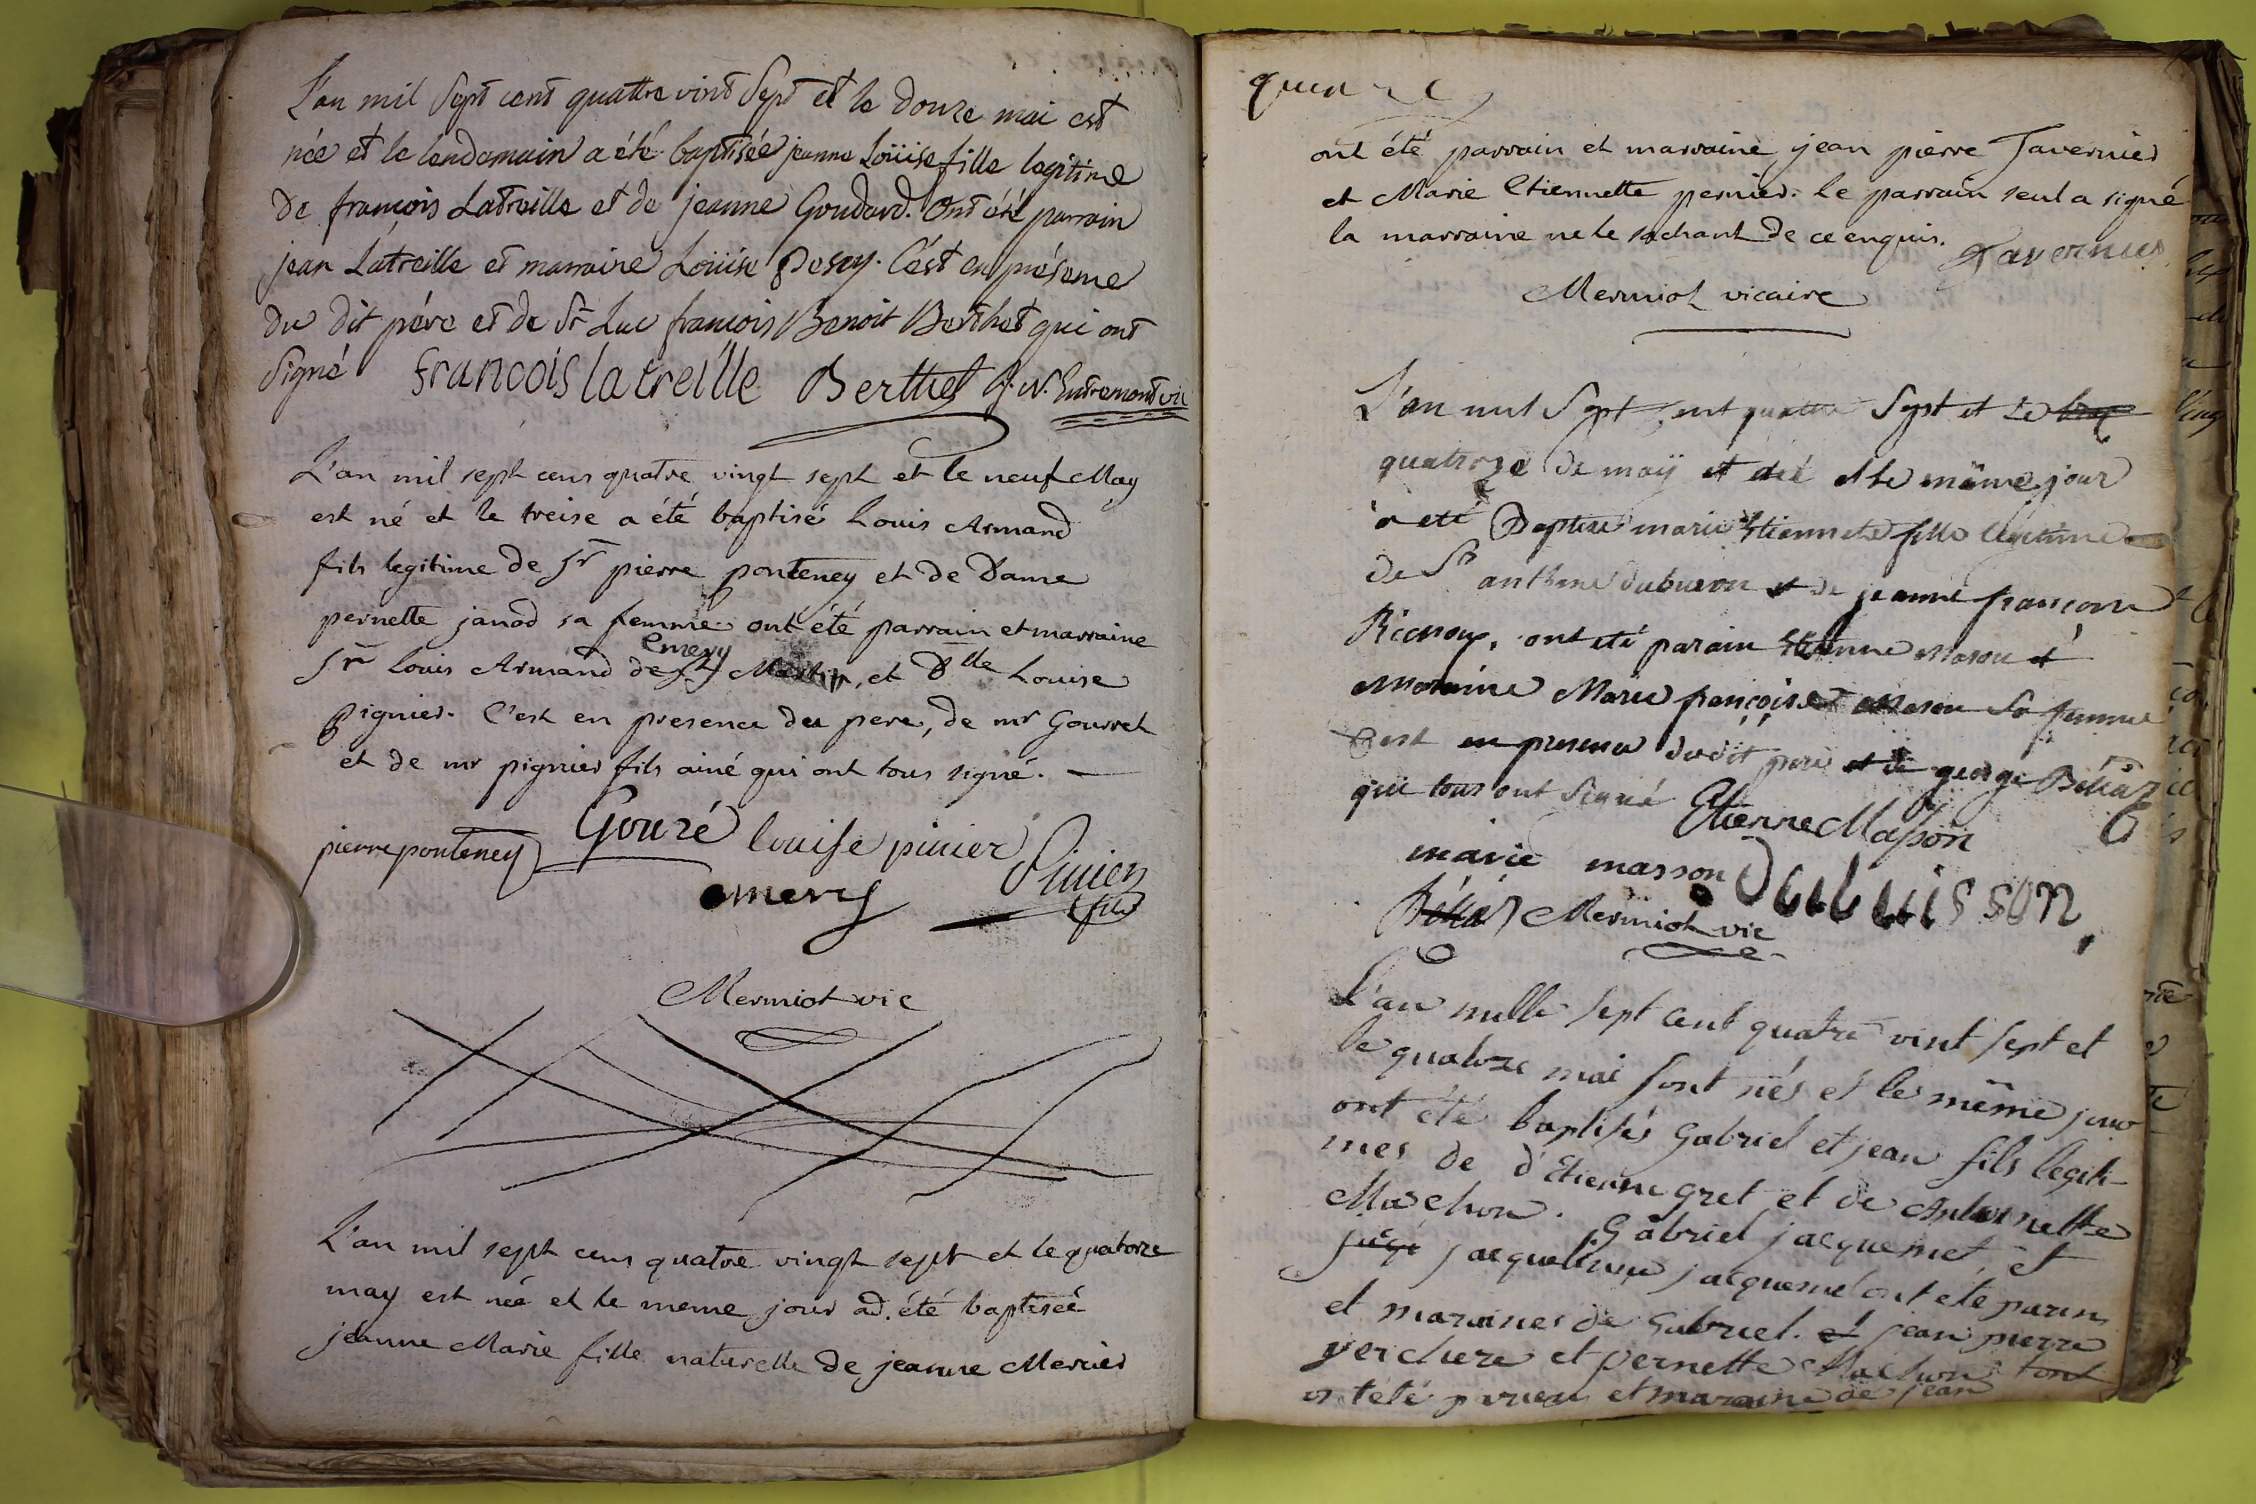 L'an mil Sept cent quattre vint Sept et le douze mai est
née et le lendemain a été baptisée jeanne Loüise fille legitime
de françois Latreille et de jeanne Goudard. Ont été parrain
jean Latreille et marraine Loüise Desoy. C'est en présence
du dit pére et de Sr Luc françois Benoit Berthet qui ont
Signé francois latreille Berthet J. N. Entremont vic
L'an mil sept cens quatre vingt sept et le neuf May
est né et le treise a été baptisé Louis Armand
fils legitime de Sr pierre ponteney et de Dame
pernette janod sa femme. ont été parrain et marraine
emery
Sr Louis Armand de et Dlle Louise
pignier. C'est en presence du pere, de mr Gourret
et de mr pignier fils ainé qui ont tous signé.
pierre ponteney Gouré louise pinier
emery Pinier
fils
Mermiot vic
L'an mil sept cens quatre vingt sept et le quatorze
may est née et le meme jour ad. été baptiseé
jeanne Marie fille naturelle de jeanne Mercier
quinze
ont été parrain et marraine jean pierre Tavernier
et Marie Etiennette pernier. le parrain seul a signé
la marraine ne le sachant de ce enquis. Tavernier
Mermiot vicaire
L'an mil Sept cent quattre Sept et Le
quatorze de maÿ et née et le même jour
a eté Baptisé marie Etiennete fille legitime
de Sr anthoine dubuison et de jeanne françoise
ont eté parain Etienne Mason et
Moraine Marie françoise Mason sa femme
C'est en presence dudit pere et de george Béliar
qui tous ont Signé Etienne Masson
marie masson Dubuisson,
Béliar Mermiot vic
L'an mille sept cent quatre vint sept et
le quatorze mai sont nés et les même jour
ont été baptisés Gabriel et jean fils legiti-
mes de d'Etienne gret et de Antoinette
Maschon. Gabriel jacquemet, et
jacqueline jacquemet ont eté parin
et maraines de Gabriel. et jean pierre
verchere et pernette Machon tont
ont été parien et maraine de jean